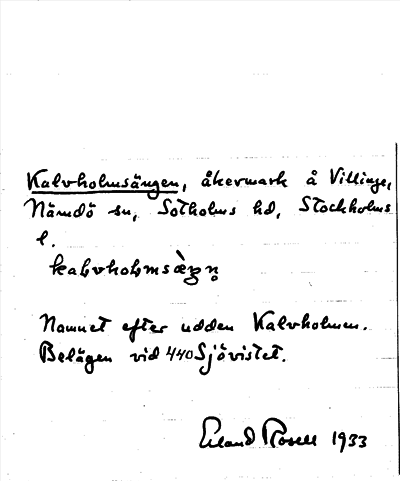 Kalvholmsängen, åkermark å Villinge,
Nämdö sn, Sotholms hd, Stockholms
l.
kalvholmsæ̀ŋn̥
Namnet efter udden Kalvholmen.
Belägen vid 440 Sjövistet.
Erland Rosell 1933